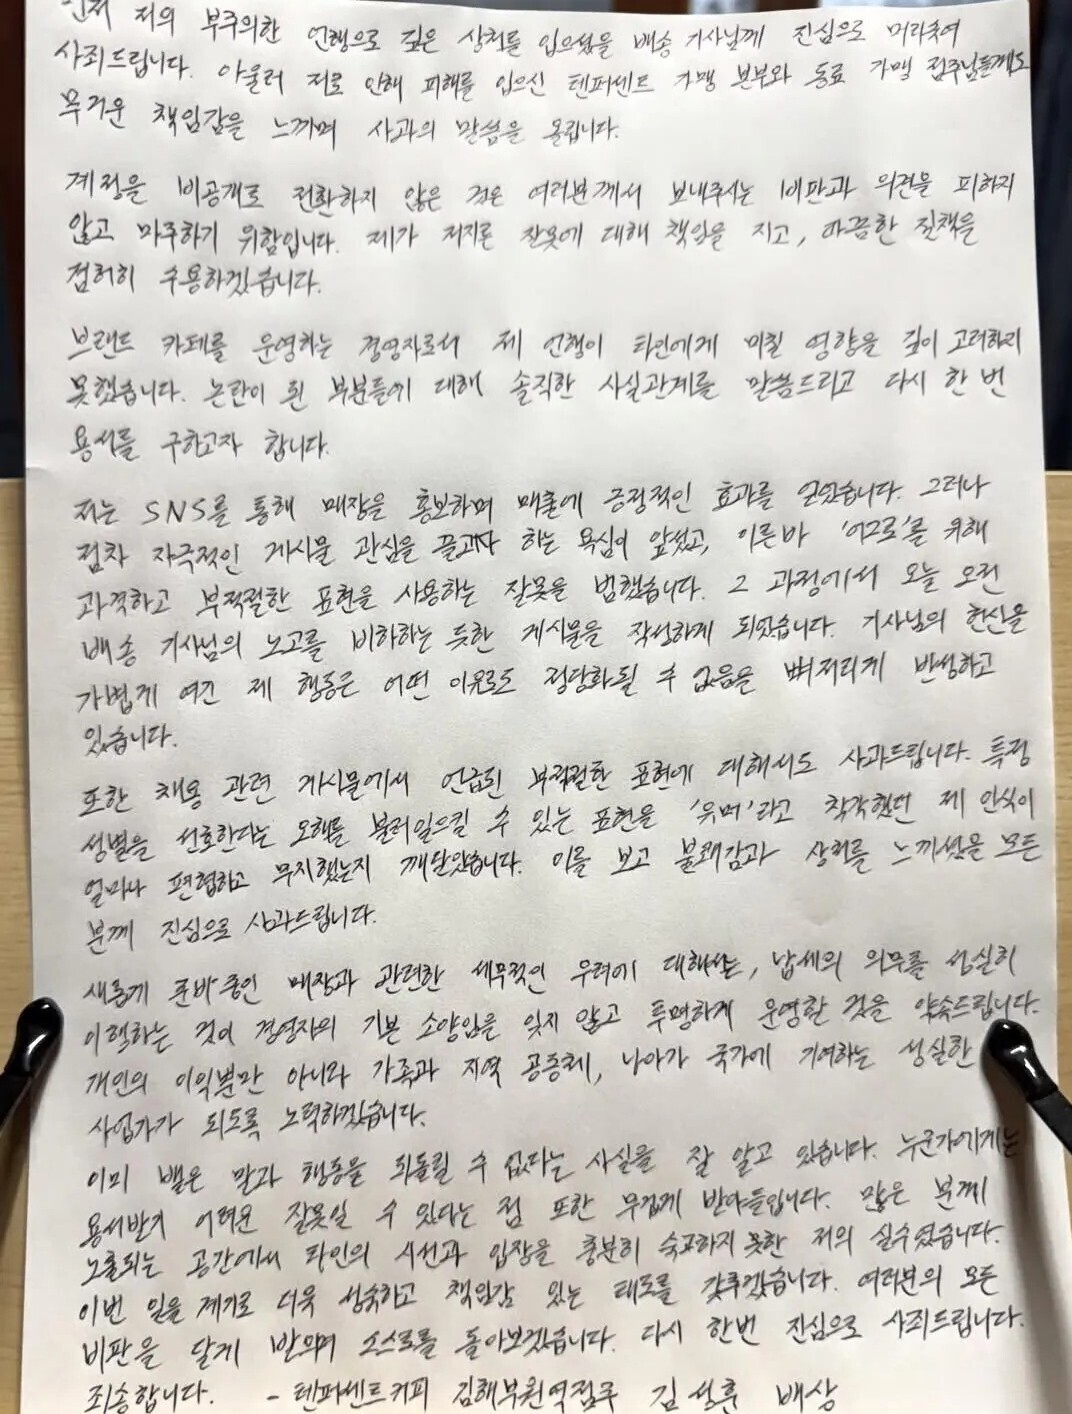 먼저 저의 부주의한 언행으로 깊은 상처를 입으셨을 배송 기사님께 진심으로 머리숙여
사죄드립니다. 아울러 저로 인해 피해를 입으신 텐퍼센트 가맹 본부와 동료 가맹 점주님들께도
무거운 책임감을 느끼며 사과의 말씀을 올립니다.
계정을 비공개로 전환하지 않은 것은 여러분께서 보내주시는 비판과 의견을 피하지
않고 마주하기 위함입니다. 제가 저지른 잘못에 대해 책임을 지고, 따끔한 질책을
겸허히 수용하겠습니다.
브랜드 카페를 운영하는 경영자로서 제 언행이 타인에게 미칠 영향을 깊이 고려하지
못했습니다. 논란이 된 부분들에 대해 솔직한 사실관계를 말씀드리고 다시 한 번
용서를 구하고자 합니다.
저는 SNS를 통해 매장을 홍보하며 매출에 긍정적인 효과를 얻었습니다. 그러나
점차 자극적인 게시물 관심을 끌고자 하는 욕심이 앞섰고, 이른바 '어그로'를 위해
과격하고 부적절한 표현을 사용하는 잘못을 범했습니다. 그 과정에서 오늘 오전
배송 기사님의 노고를 비하하는 듯한 게시물을 작성하게 되었습니다. 기사님의 헌신을
가볍게 여긴 제 행동은 어떤 이유로도 정당화될 수 없음을 뼈저리게 반성하고
있습니다.
또한 채용 관련 게시물에서 언급된 부적절한 표현에 대해서도 사과드립니다. 특정
성별을 선호한다는 오해를 불러일으킬 수 있는 표현을 '유머'라고 착각했던 제 인식이
얼마나 편협하고 무지했는지 깨달았습니다. 이를 보고 불쾌감과 상처를 느끼셨을 모든
분께 진심으로 사과드립니다.
새롭게 준비 중인 매장과 관련한 세무적인 우려에 대해서는, 납세의 의무를 성실히
이행하는 것이 경영자의 기본 소양임을 잊지 않고 투명하게 운영할 것을 약속드립니다.
개인의 이익뿐만 아니라 가족과 지역 공동체, 나아가 국가에 기여하는 성실한
사업가가 되도록 노력하겠습니다.
이미 뱉은 말과 행동을 되돌릴 수 없다는 사실을 잘 알고 있습니다. 누군가에게는
용서받기 어려운 잘못일 수 있다는 점 또한 무겁게 받아들입니다. 많은 분께
노출되는 공간에서 타인의 시선과 입장을 충분히 숙고하지 못한 저의 실수였습니다.
이번 일을 계기로 더욱 성숙하고 책임감 있는 태도를 갖추겠습니다. 여러분의 모든
비판을 달게 받으며 스스로를 돌아보겠습니다. 다시 한번 진심으로 사죄드립니다.
죄송합니다. - 텐퍼센트커피 김해부원역점주 김성훈 배상